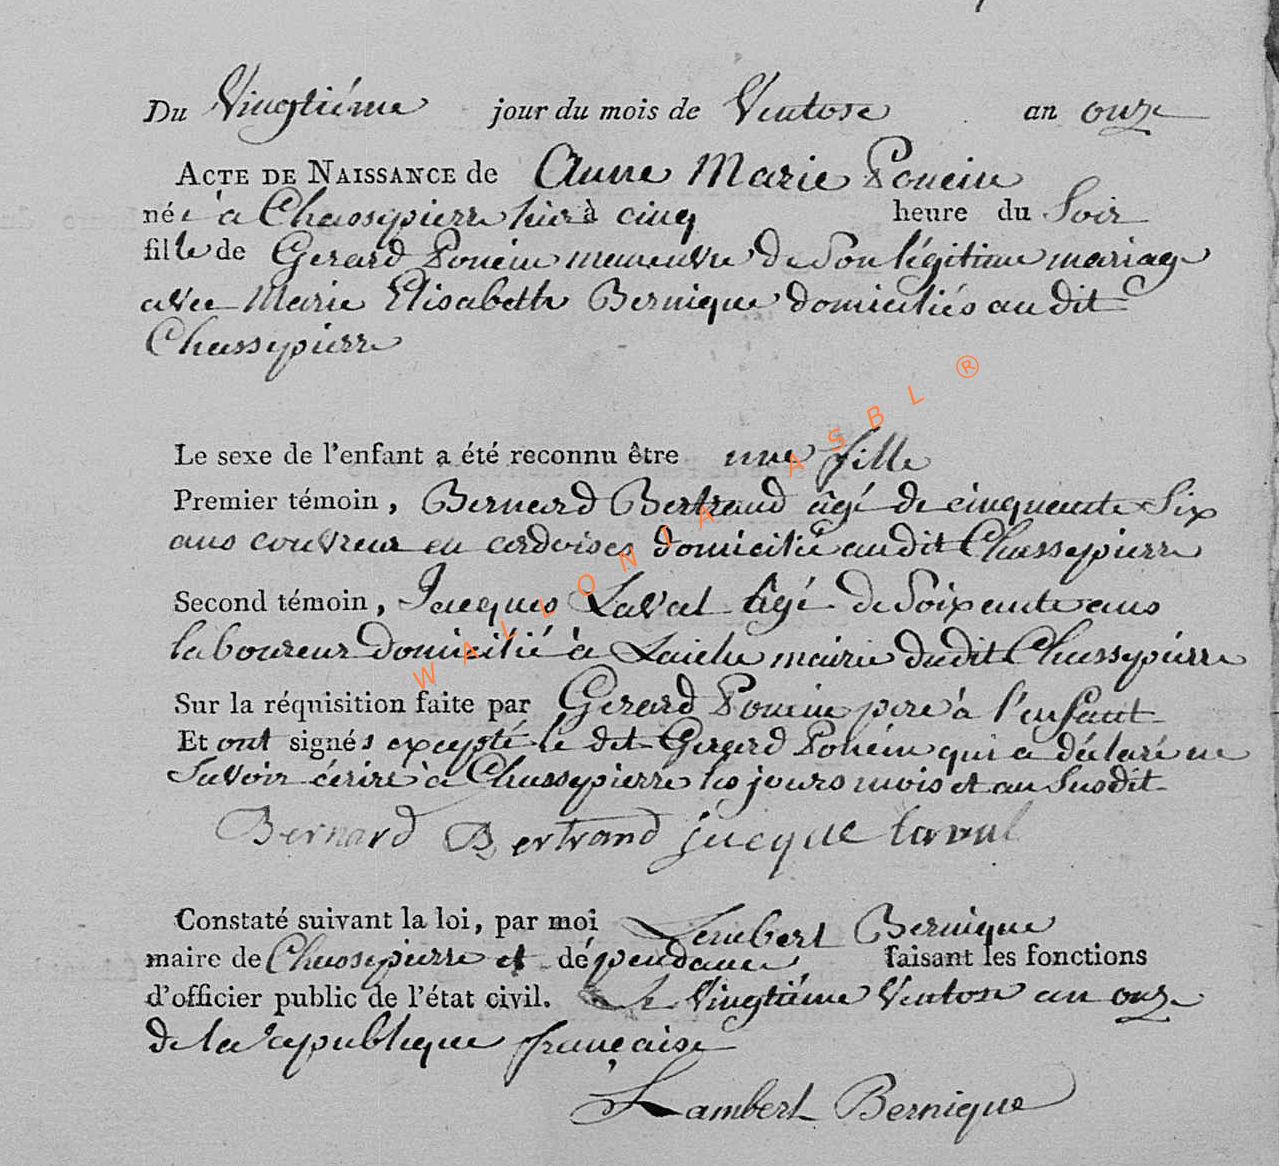 Du Vingtiéme jour du mois de Ventose an onze
ACTE DE NAISSANCE de Anne Marie Poncin
née à Chassypierre hier à cinq heure du Soir
fille de Gerard Poncin maneuvre de Son légitime mariage
avec Marie Elisabeth Bernique domiciliés au dit
Chassypierre
Le sexe de l'enfant a été reconnu être une fille
Premier témoin, Bernard Bertrand âgé de cinquante Six
ans couvreur en ardoises domicilié au dit Chassypierre
Second témoin, Jacques Laval âgé de Soixante ans
laboureur domicilié à Laiche mairie dudit Chassypierre
Sur la réquisition faite par Gerard Poncin pere à l'enfant
Et ont signés excepté le dit Gerard Poncin qui a déclaré ne
Savoir écrire à Chassypierre les jours mois et an Susdit
Bernard Bertrand jacque laval
Constaté suivant la loi, par moi Lambert Bernique
maire de Chassepierre et dépendance faisant les fonctions
d'officier public de l'état civil. Le Vingtiéme Ventose an onze
de la republique française
Lambert Bernique
WALLONIA ASBL ®